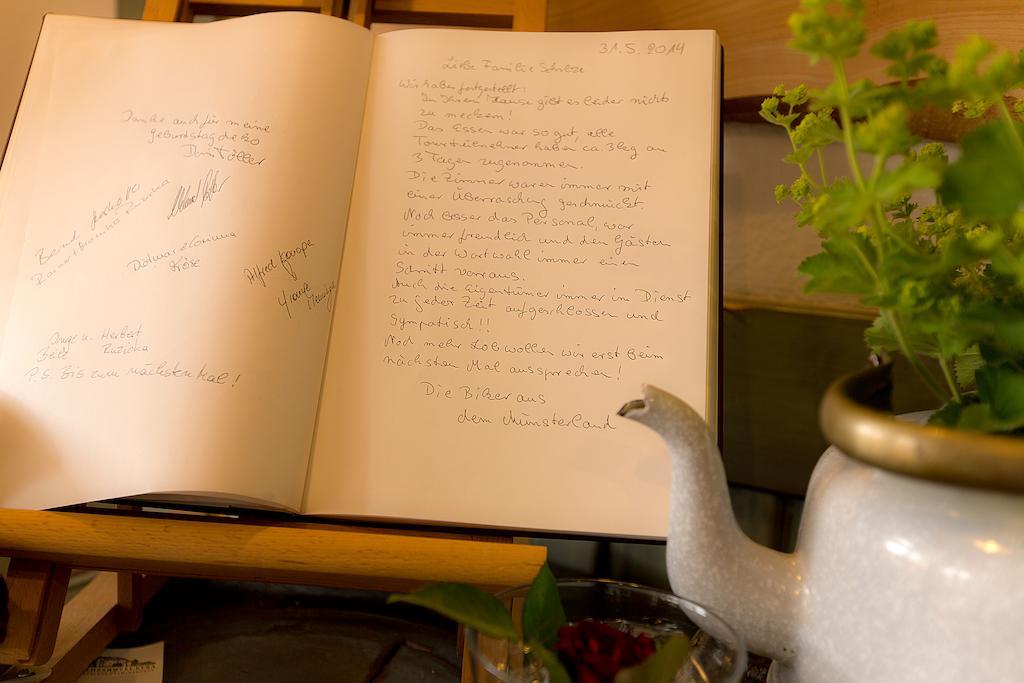 Danke auch für meine
geburtstagdeko
Bernd
Dietmar + Corinna
Köse
Alfred
Inge u. Herbert
Beitz Ruzicka
P.S. Bis zum nächsten Mal!
31.5.2014
Liebe Familie Schulze
Wir haben festgestellt!
In Ihrem Hause gibt es leider nichts
zu meckern!
Das Essen war so gut, alle
Tourteilnehmer haben ca. 3 kg an
3 Tagen zugenommen.
Die Zimmer waren immer mit
einer Überraschung geschmückt.
Noch besser das Personal, war
immer freundlich und den Gästen
in der Wortwahl immer einen
Schritt vorraus.
Auch die Eigentümer immer im Dienst
zu jeder Zeit aufgeschlossen und
Sympatisch!!
Noch mehr Lob wollen wir erst beim
nächsten Mal aussprechen!
Die Biker aus
dem Münsterland